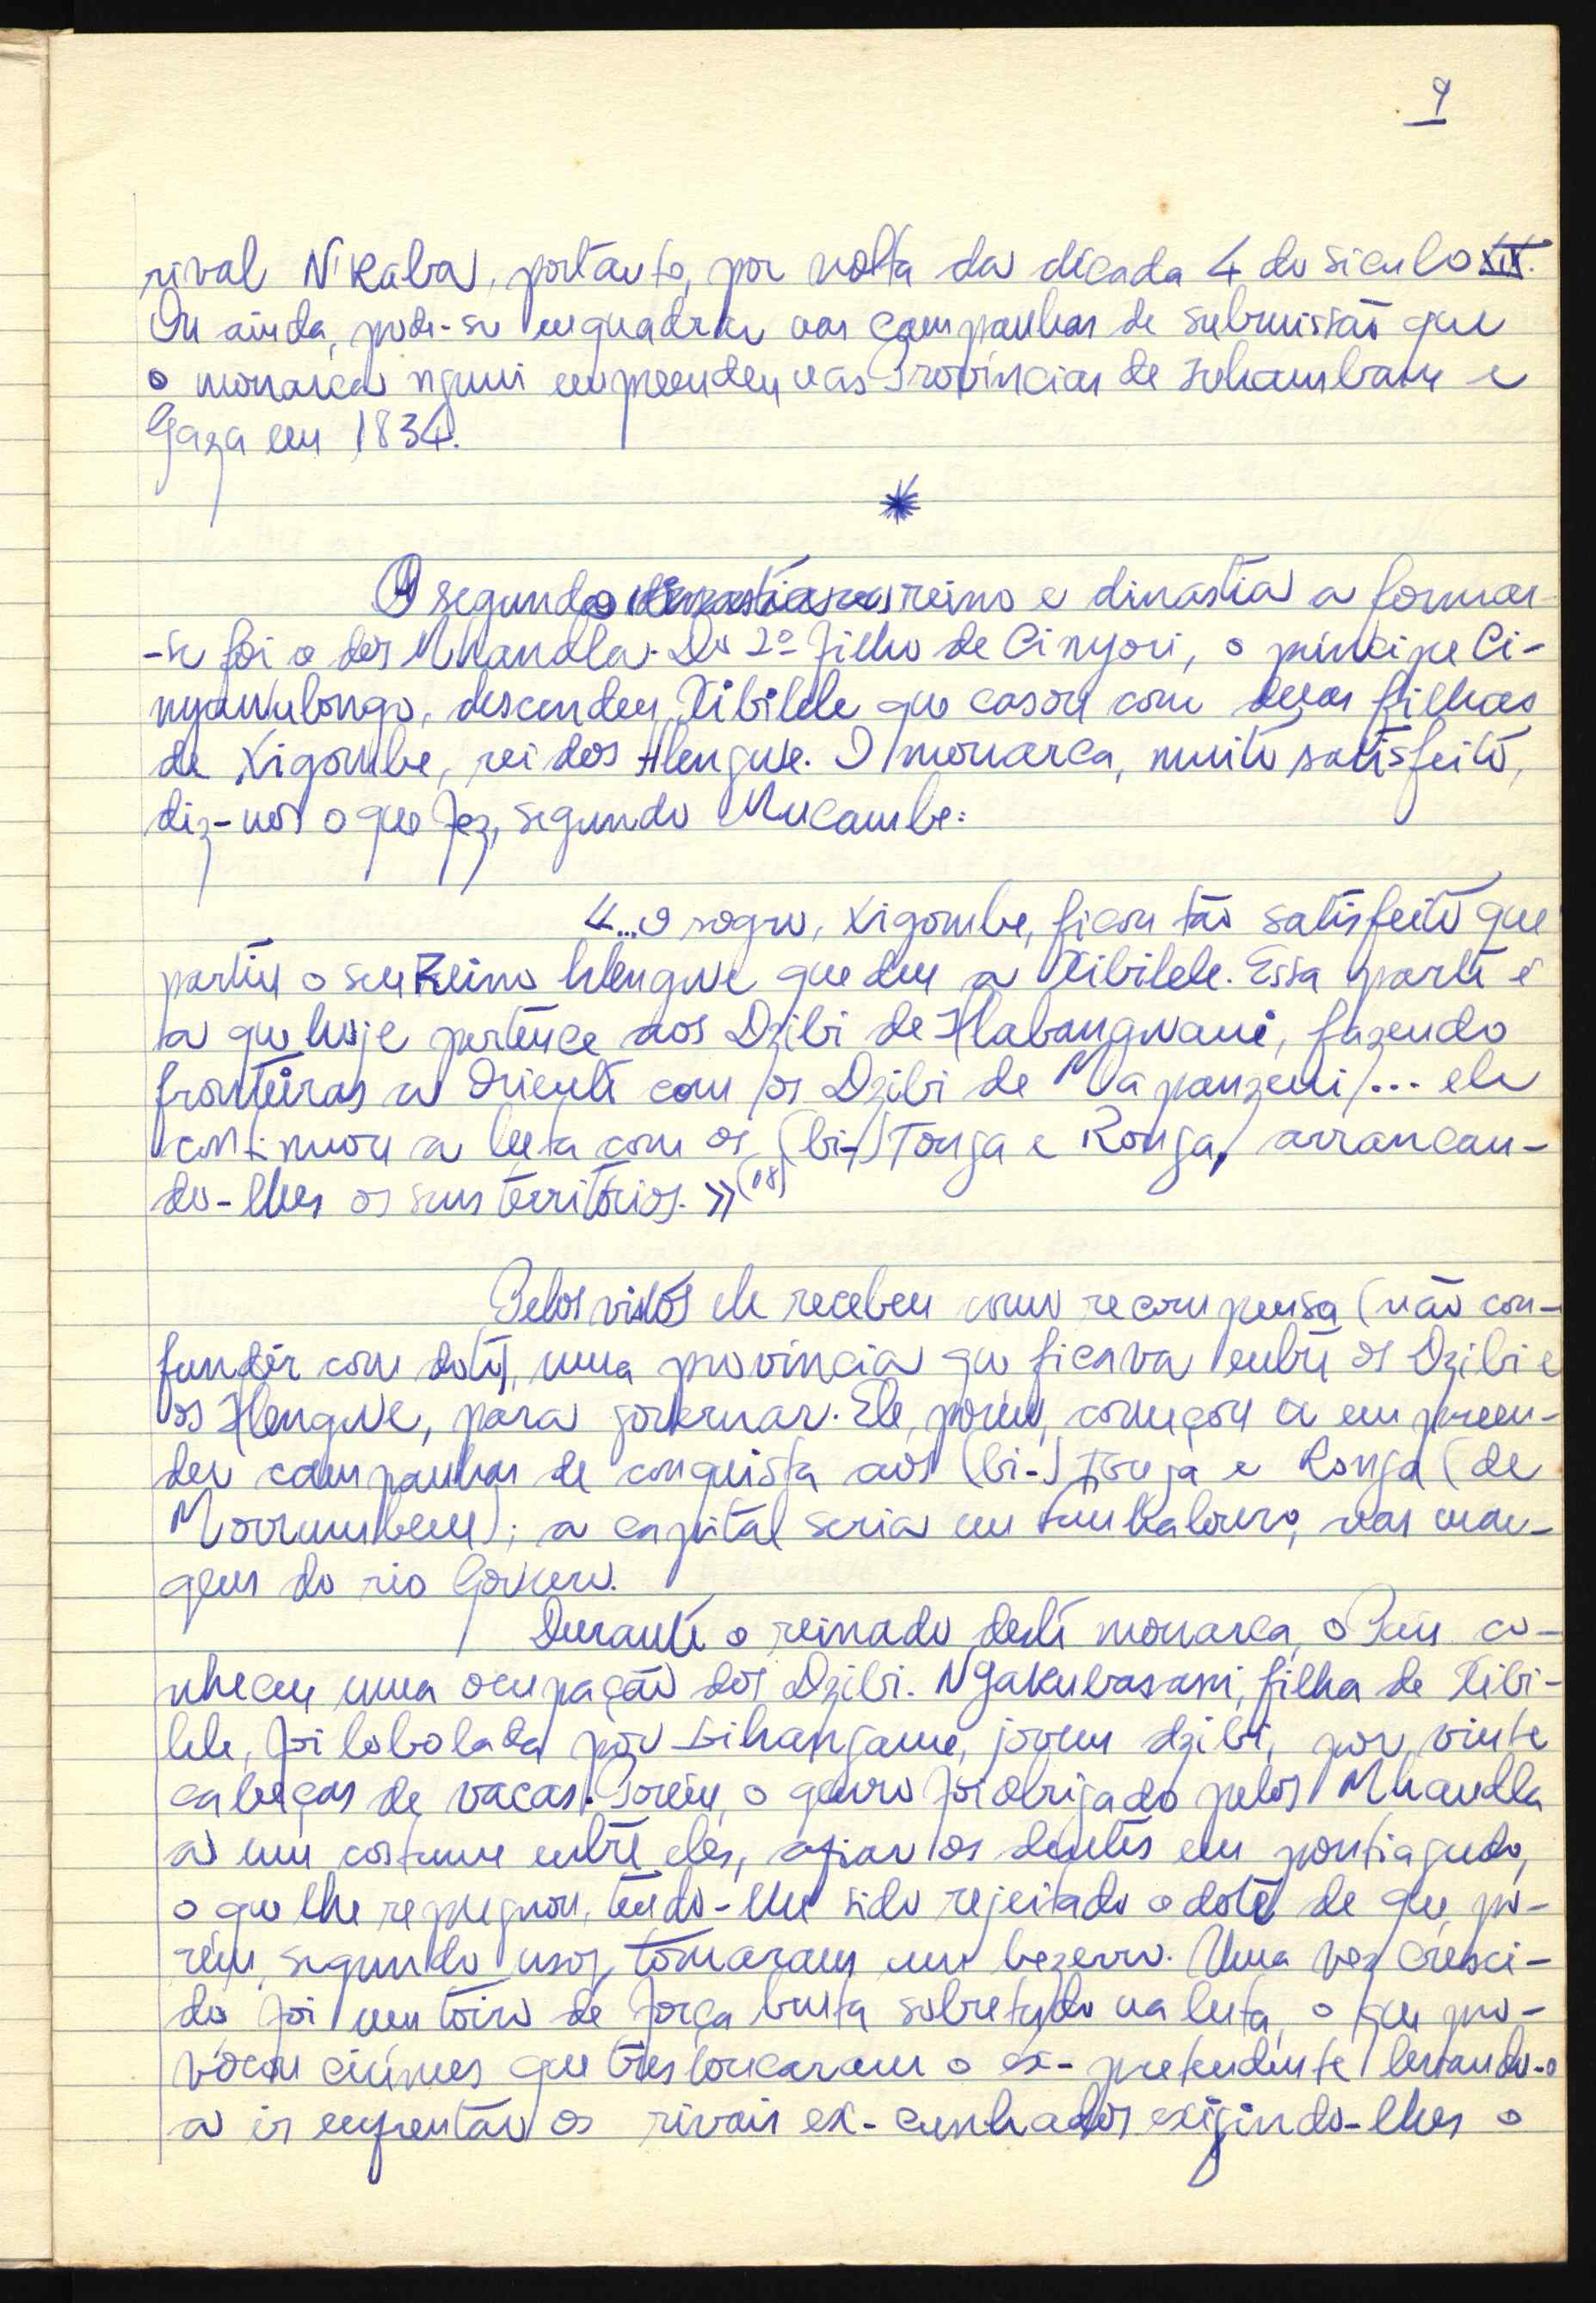 9
rival N'Kaba, portanto, por volta da década 4 do século XIX.
Ou ainda, pode-se enquadrar nas campanhas de submissão que
o monarca nguni empreendeu nas Províncias de Inhambane e
Gaza em 1834.
*
O segundo reino e dinastia a formar-
-se foi o dos Mhandla. Do 2º filho de Cinyori, o príncipe Ci-
nyanulongo, descendeu Xibilele que casou com duas filhas
de Xigombe, rei dos Hlengwe. O monarca, muito satisfeito,
diz-nos o que fez, segundo Mucambe:
«...o sogro, Xigombe, ficou tão satisfeito que
partiu o seu Reino hlengwe que deu a Xibilele. Essa parte é
a que hoje pertence aos Dzibi de Hlabangwani, fazendo
fronteiras a Oriente com os Dzibi de Mapanzeni/... ele
continuou a luta com os (bi-)Tonga e Ronga, arrancan-
do-lhes os seus territórios.»(18)
Pelos vistos ele recebeu como recompensa (não con-
fundir com dote), uma província que ficava entre os Dzibi e
os Hlengwe, para governar. Ele, porém, começou a empreen-
der campanhas de conquista aos (bi-)Tonga e Ronga (de
Morrumbene); a capital seria em nas mar-
gens do rio Govuro.
Durante o reinado deste monarca, o País co-
nheceu uma ocupação dos Dzibi. Ngakubasani, filha de Xibi-
lele, foi lobolada por jovem dzibi, por vinte
cabeças de vacas. Porém, o genro foi obrigado pelos Mhandla
a um costume entre eles, afiar os dentes em pontiagudo,
o que lhe repugnou, tendo-lhe sido rejeitado o dote de que, po-
rém, segundo usos, tomaram um bezerro. Uma vez cresci-
do foi um toiro de força bruta sobretudo na luta, o que pro-
vocou ciúmes que tresloucaram o ex-pretendente levando-o
a ir enfrentar os rivais ex-cunhados exigindo-lhes o